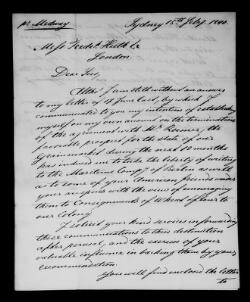 pr Medway
Sydney 15th July 1840
Messrs Fredk Huth & Co
London
Dear Sirs,
Altho' I am still without an answer
to my letter of 18 June last, by which I
communicated to you my intention of establishing
myself on my own account on the termination
of the agreement with Mr
favorable prospect for the state of our
market during the next 12 months
has induced me to take the liberty of writing
to the Maritime Comp. of Berlin as well
as to some of your American friends near
your with the view of encouraging
them to Consignments of Wheat & flour to
our Colony
I solicit your kind services in forwarding
these communications to their destination
after perusal, and the exercise of your
valuable influence in backing them by your
recommendation
You will find enclosed the letter
to